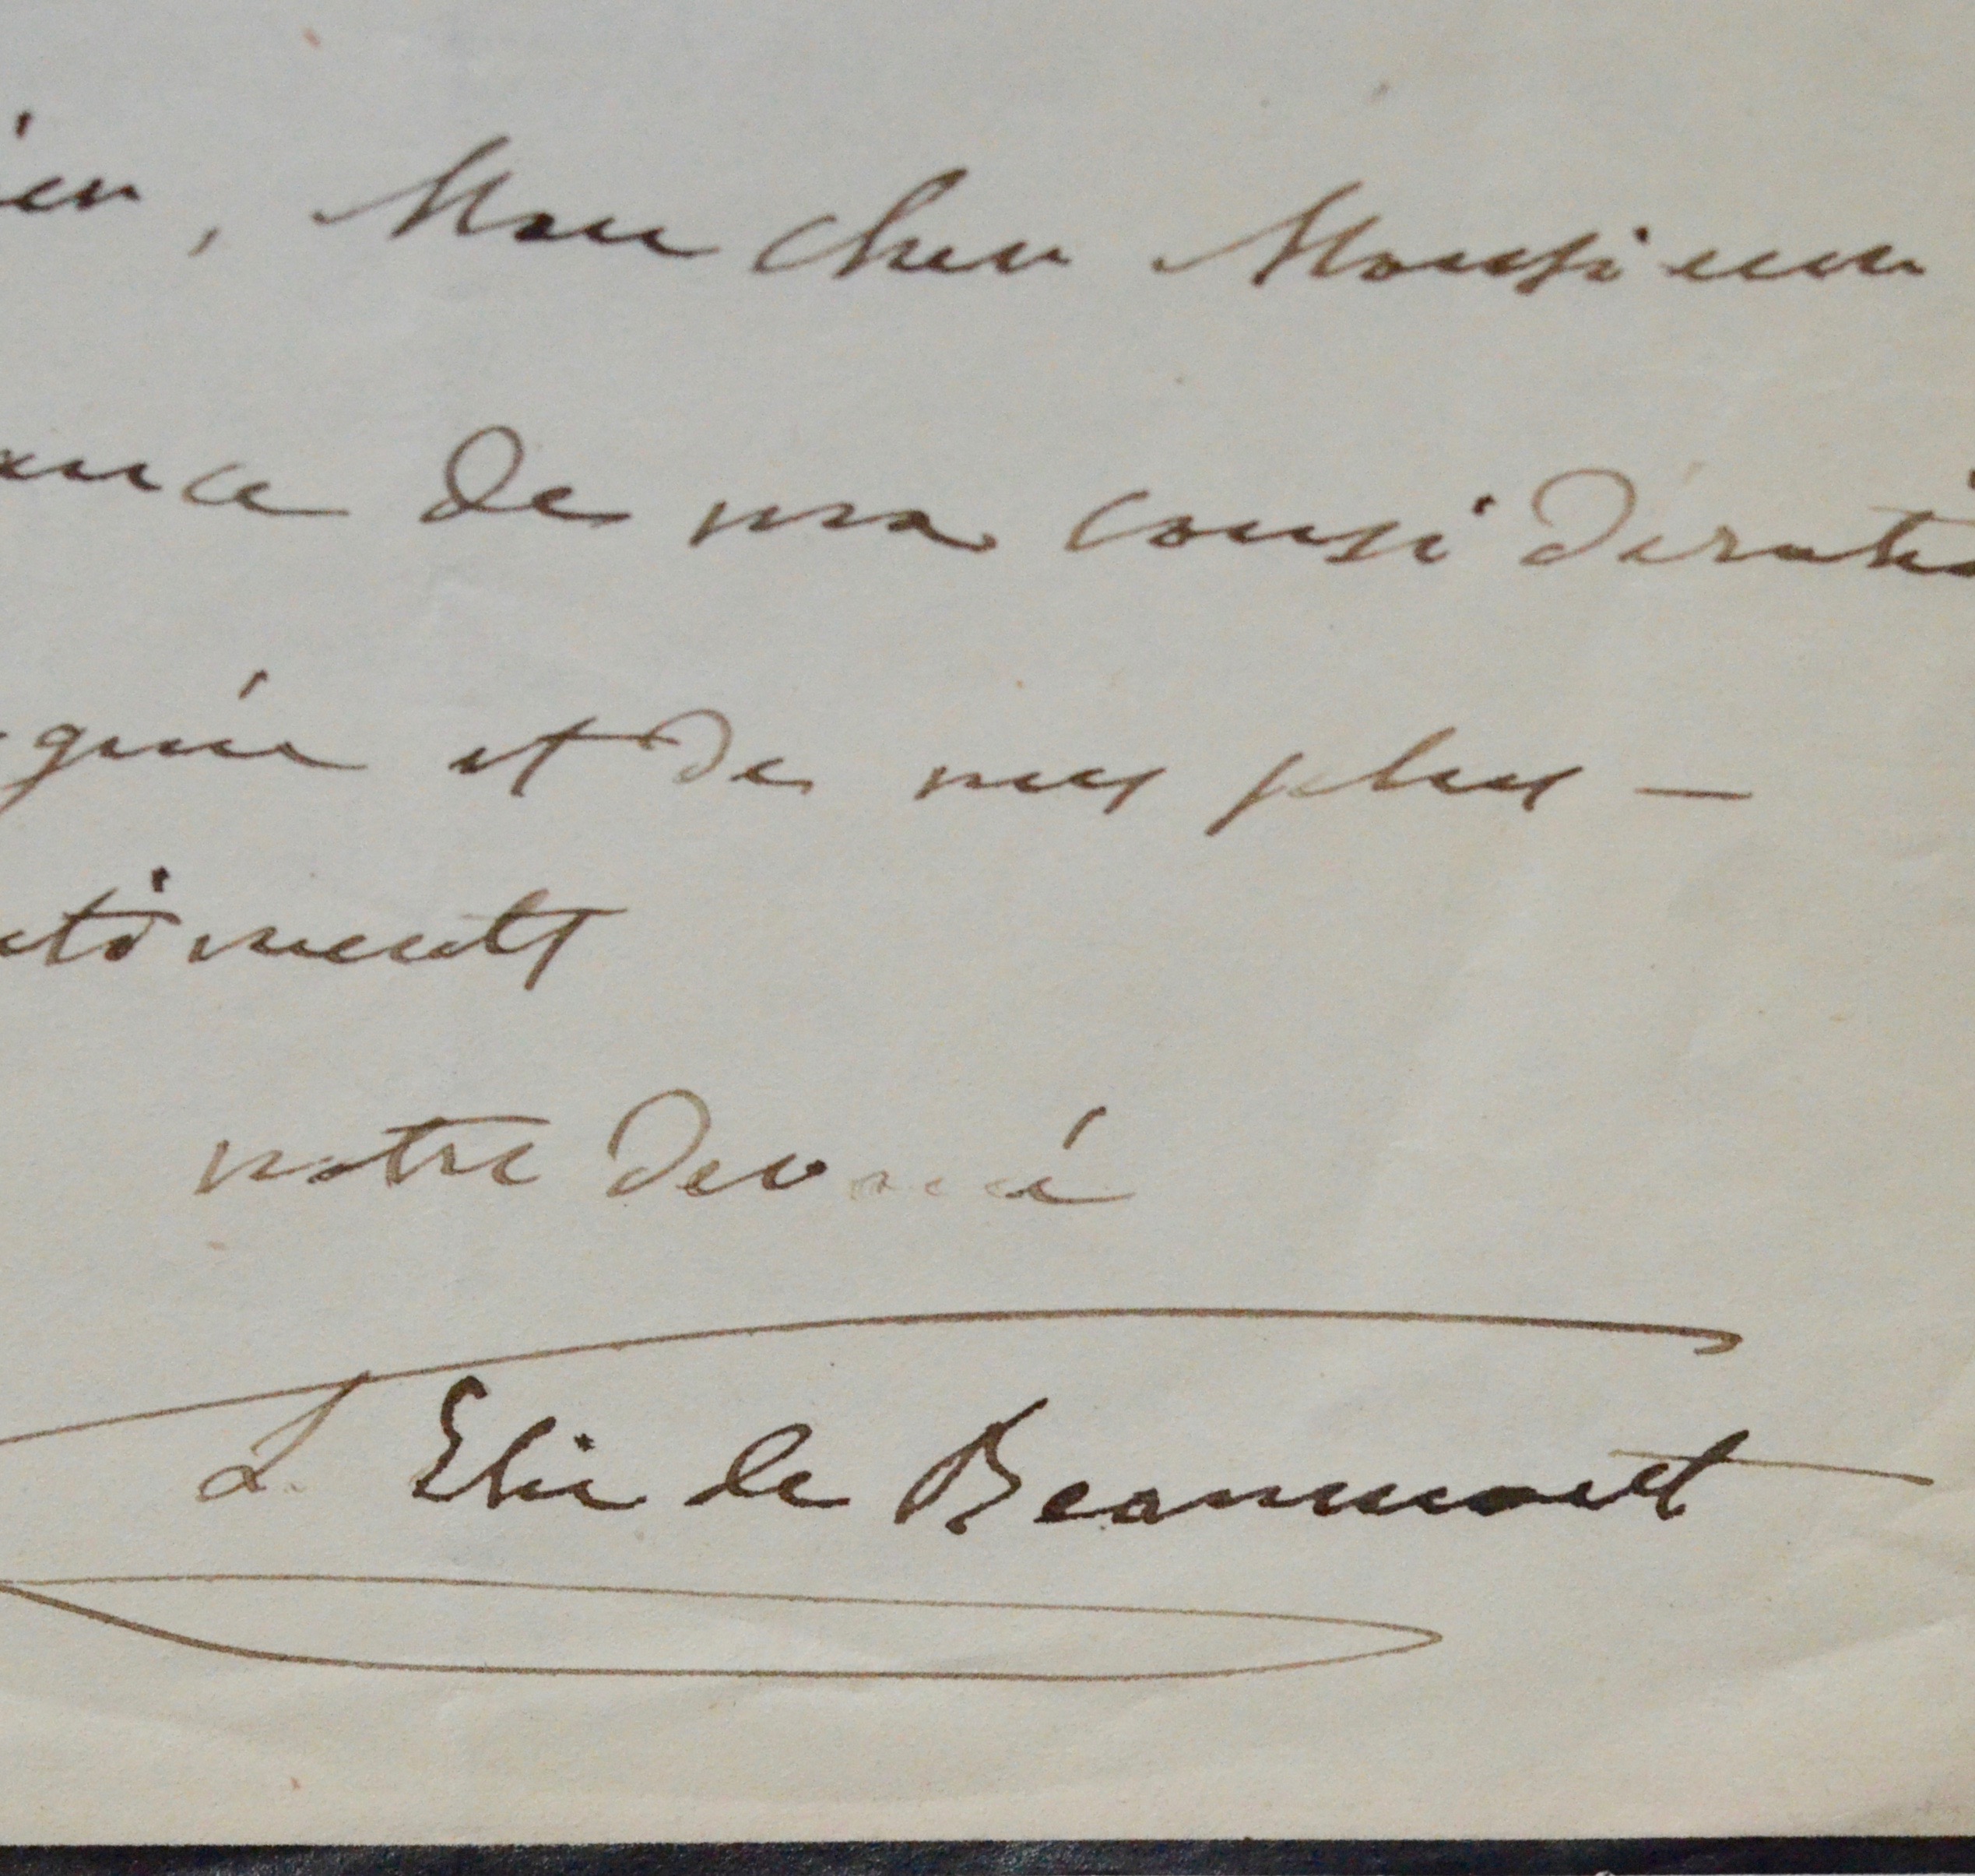 ien, Mon cher Monsieur
ance de ma considératio
guée et de mes plus —
ntiments
votre dévoué
L. Elie de Beaumont